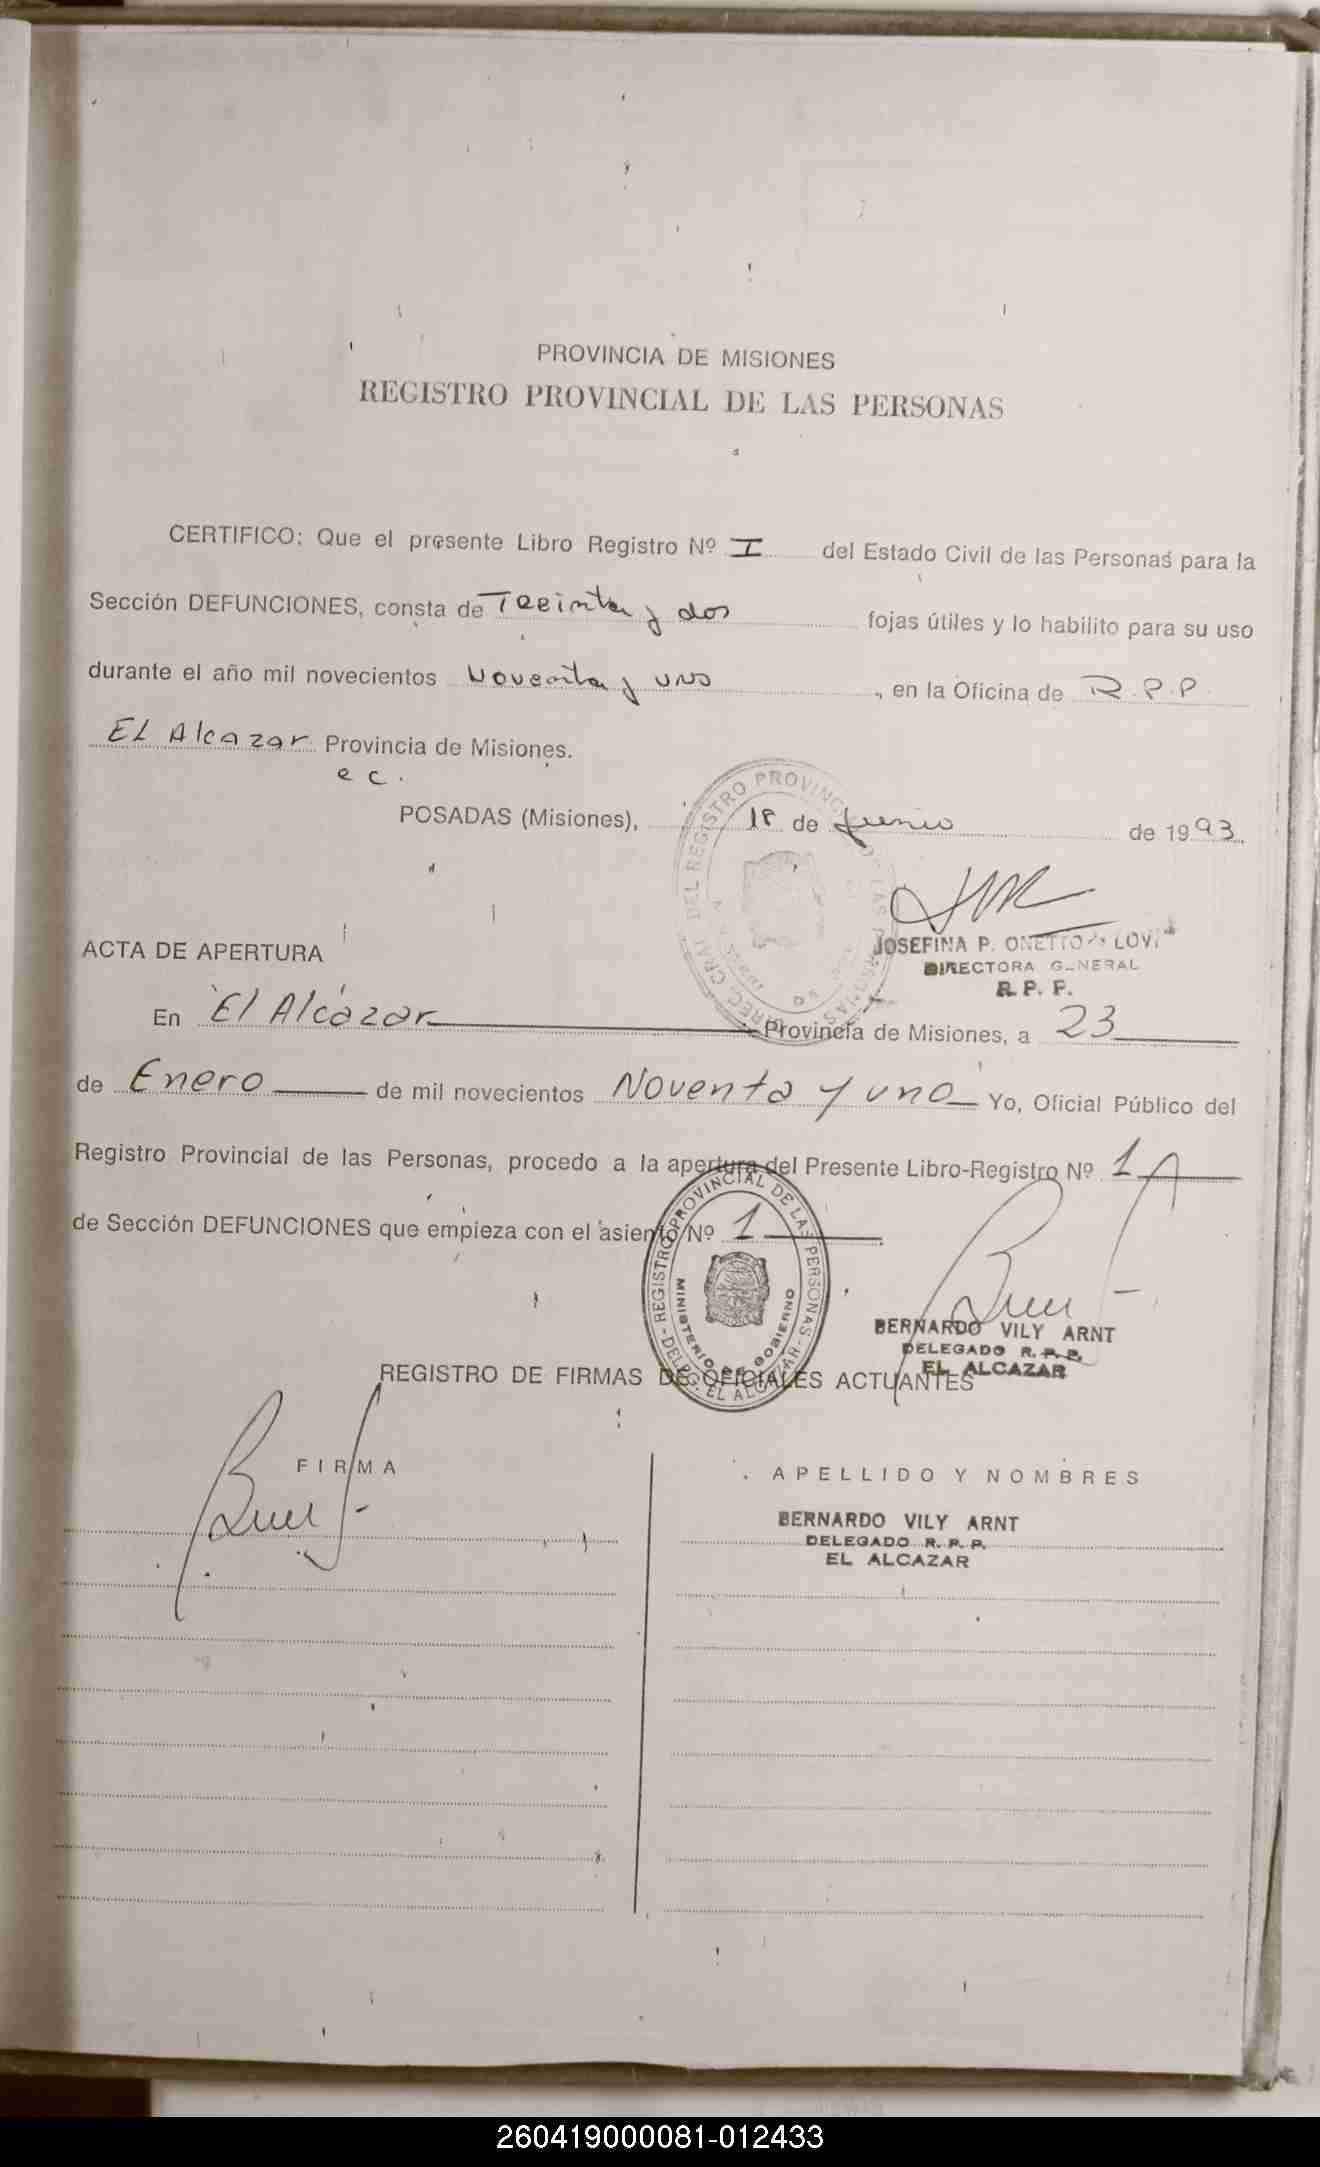 PROVINCIA DE MISIONES
REGISTRO PROVINCIAL DE LAS PERSONAS
CERTIFICO: Que el presente Libro Registro Nº I del Estado Civil de las Personas para la
Sección DEFUNCIONES, consta de Treinta y dos fojas útiles y lo habilito para su uso
durante el año mil novecientos Noventa y uno, en la Oficina de R.P.P.
El Alcazar Provincia de Misiones.
e c.
POSADAS (Misiones), 18 de Junio de 1993
JOSEFINA P. ONETTO
DIRECTORA GENERAL
R. P. P.
ACTA DE APERTURA
En El Alcazar Provincia de Misiones, a 23
de Enero de mil novecientos Noventa y uno Yo, Oficial Público del
Registro Provincial de las Personas, procedo a la apertura del Presente Libro-Registro Nº 1A
de Sección DEFUNCIONES que empieza con el asiento Nº 1
REGISTRO PROVINCIAL DE LAS PERSONAS - DELEG. EL ALCAZAR
MINISTERIO DE GOBIERNO
BERNARDO VILY ARNT
DELEGADO R. P. P.
EL ALCAZAR
REGISTRO DE FIRMAS DE OFICIALES ACTUANTES
FIRMA
APELLIDO Y NOMBRES
BERNARDO VILY ARNT
DELEGADO R. P. P.
EL ALCAZAR
260419000081-012433